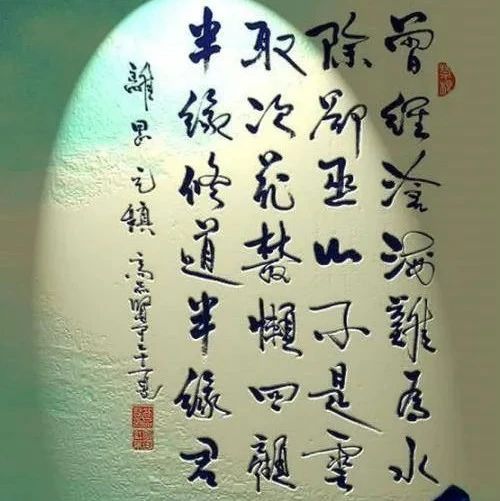 曾經滄海難為水
除卻巫山不是雲
取次花叢懶回顧
半緣修道半緣君
離思 元鎮